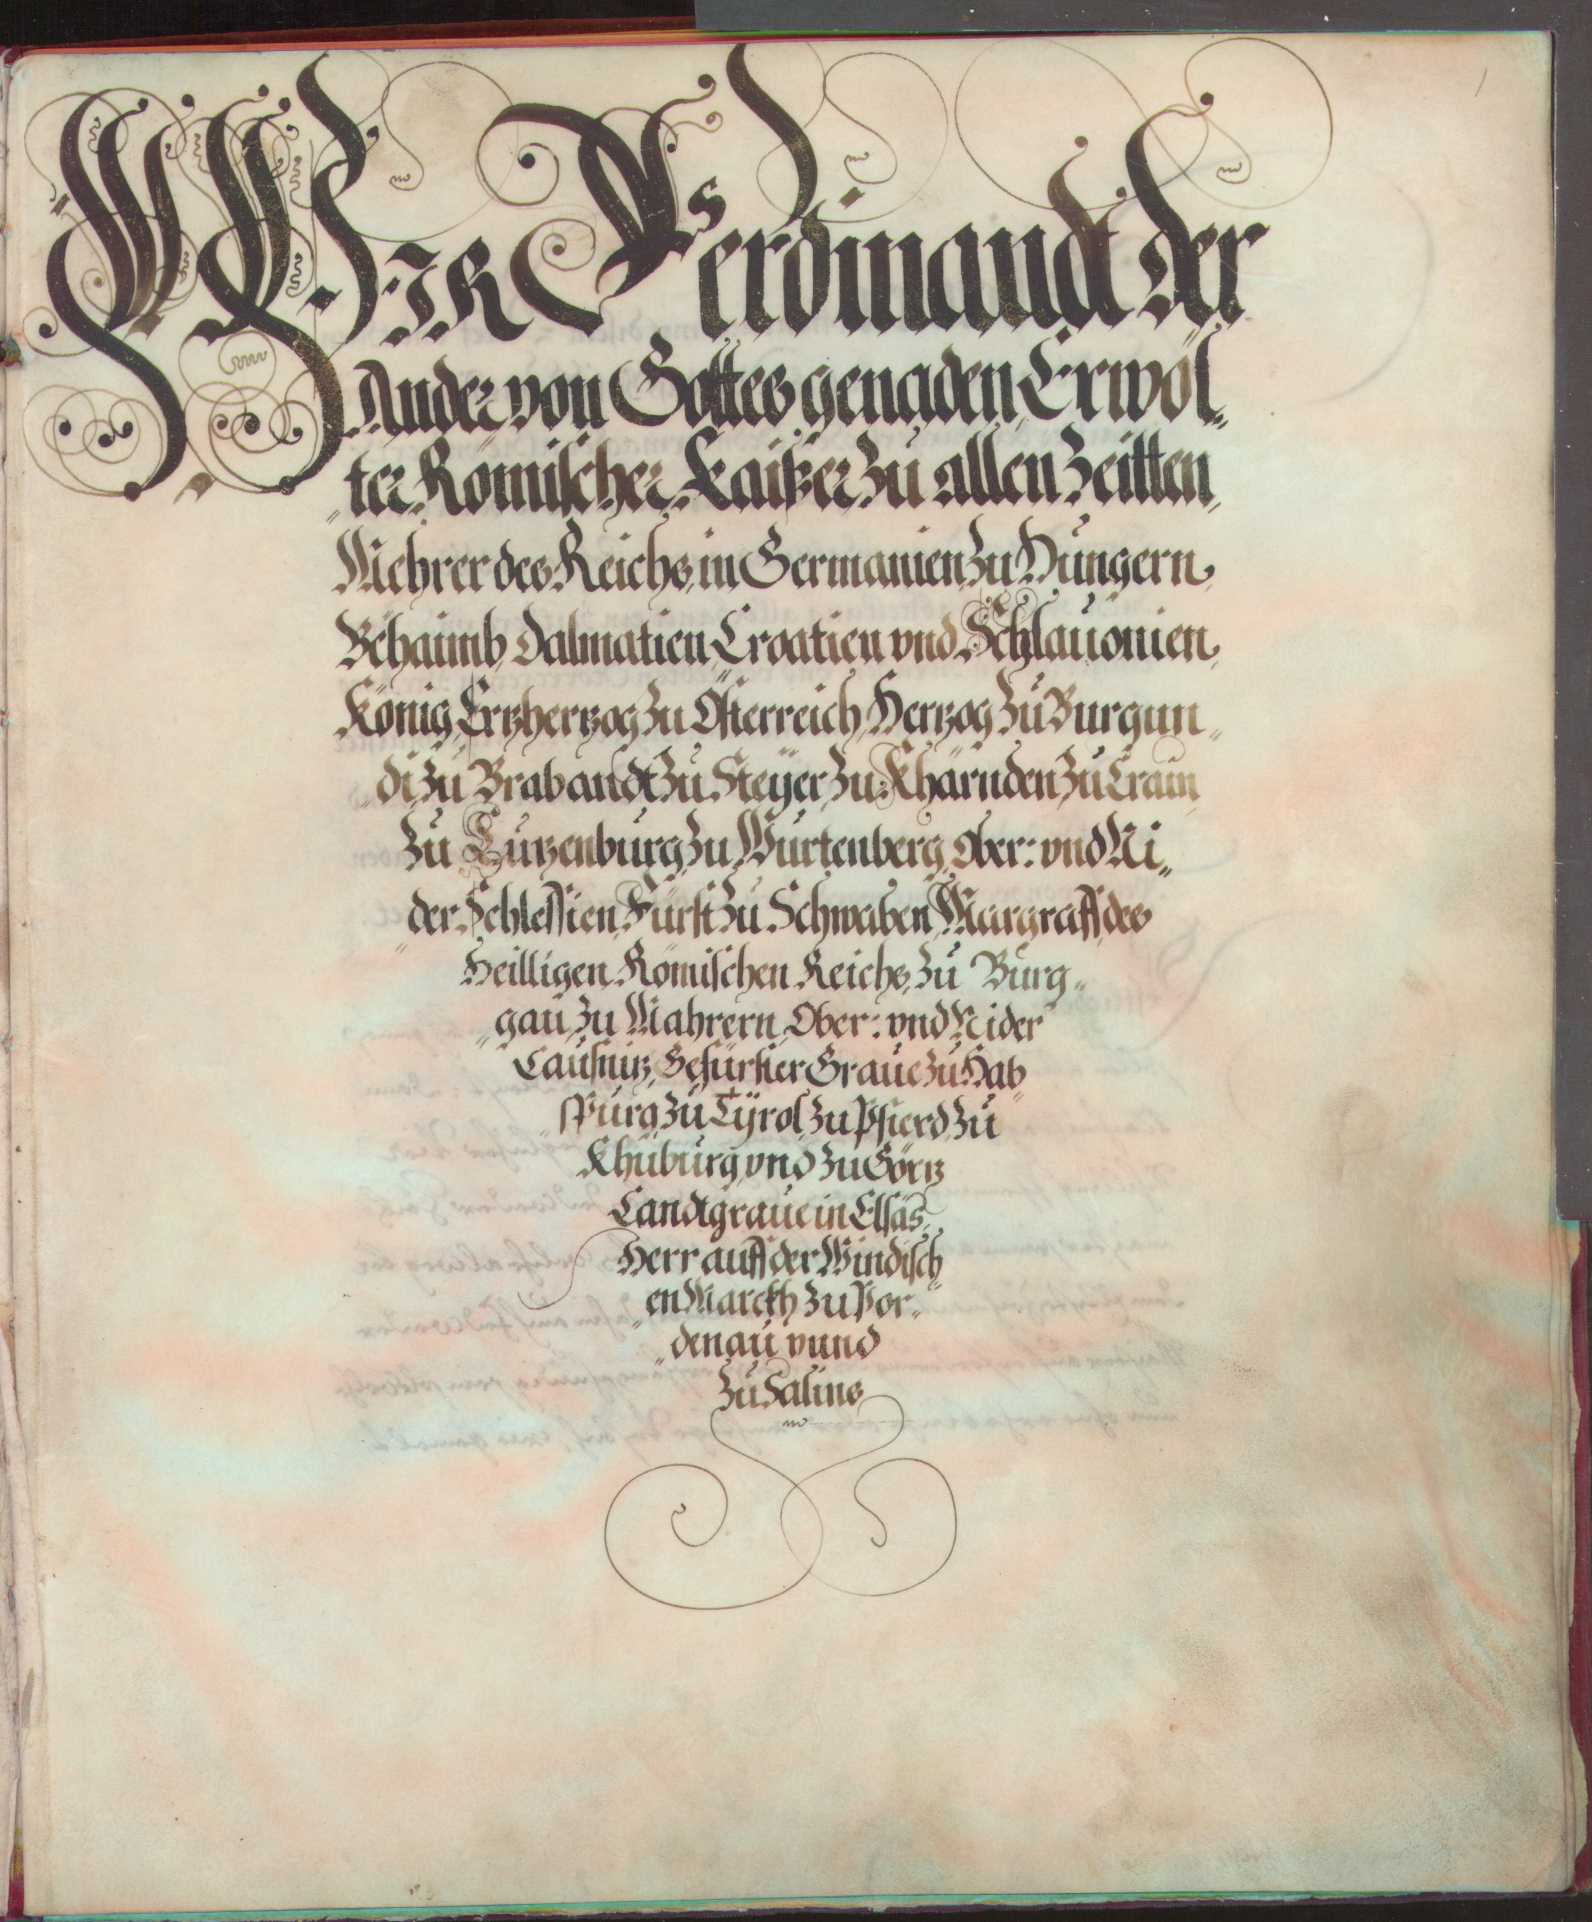 WIR Ferdinandt der
Ander von Gottes genaden Erwöl„
„ter Römischer Kaißer zu allen Zeitten
Mehrer des Reichs, in Germanien zu Hungern,
Behaimb, Dalmatien, Croatien vnd Schlauonien,
König, Ertzhertzog zu Österreich, Hertzog zu Burgun„
„di zu Brabandt zu Steyer, zu Khärnden zu Crain
zu Lutzenburg, zu Würtenberg, Ober: vnd Ni„
„der Schlessien, Fürst zu Schwaben, Margraff des
Heilligen Römischen Reichs, zu Burg„
„gau zu Mahrern, Ober: vnd Nider
Lausnitz, Gefürster Graue zu Hab„
„spurg zu Tyrol, zu Pfierd, zu
Khüburg vnd zu Görtz
Landtgraue in Elsäs,
Herr auff der Windisch„
„en Marckh zu Por„
„denau vnnd
zu Salins
1